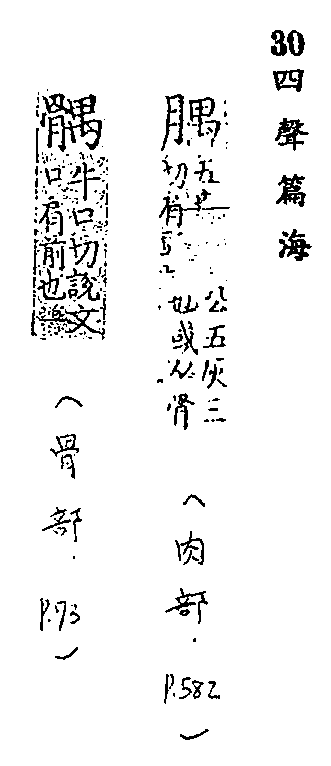 30 四聲篇海
腢
五
切肩
公五灰三
或从
(肉部.
P.582)
髃
牛口切說文
口肩前也
(骨部.
P.93)